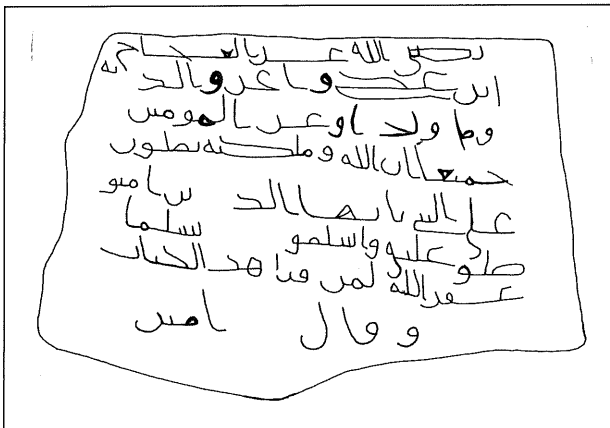 الله عن
ابن وا عن والديه
وما ولدا وعن المومنين
جميعا ان الله وملئكته يصلون
على النبي يايها الذين امنو
صلو عليه واسلمو تسليما
غفر الله لمن قرا هذ الكتاب
وقال امين